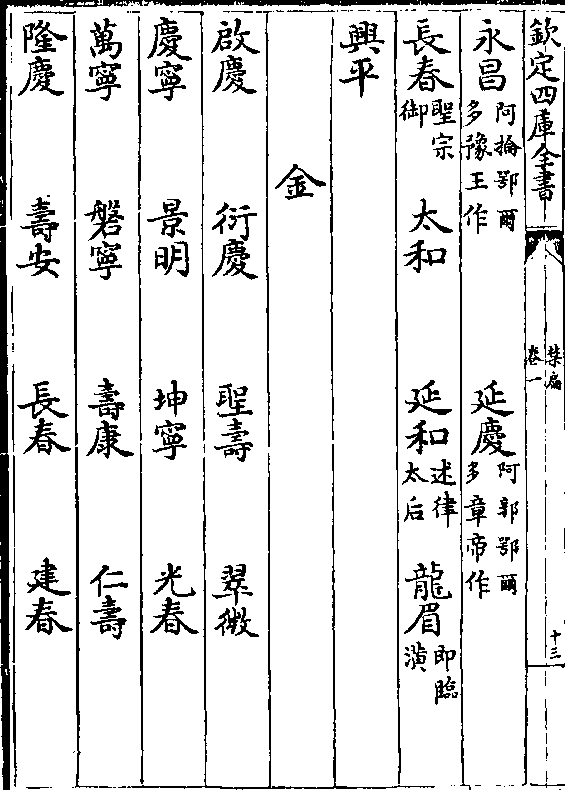 欽定四庫全書
禁扁
卷一
十三
永昌阿掄鄂爾多豫王作　延慶阿郭鄂爾多章帝作
長春聖宗御　太和　延和述律太后　龍眉即臨潢
興平
金
啟慶　衍慶　聖壽　翠微
慶寧　景明　坤寧　光春
萬寧　磐寧　壽康　仁壽
隆慶　壽安　長春　建春